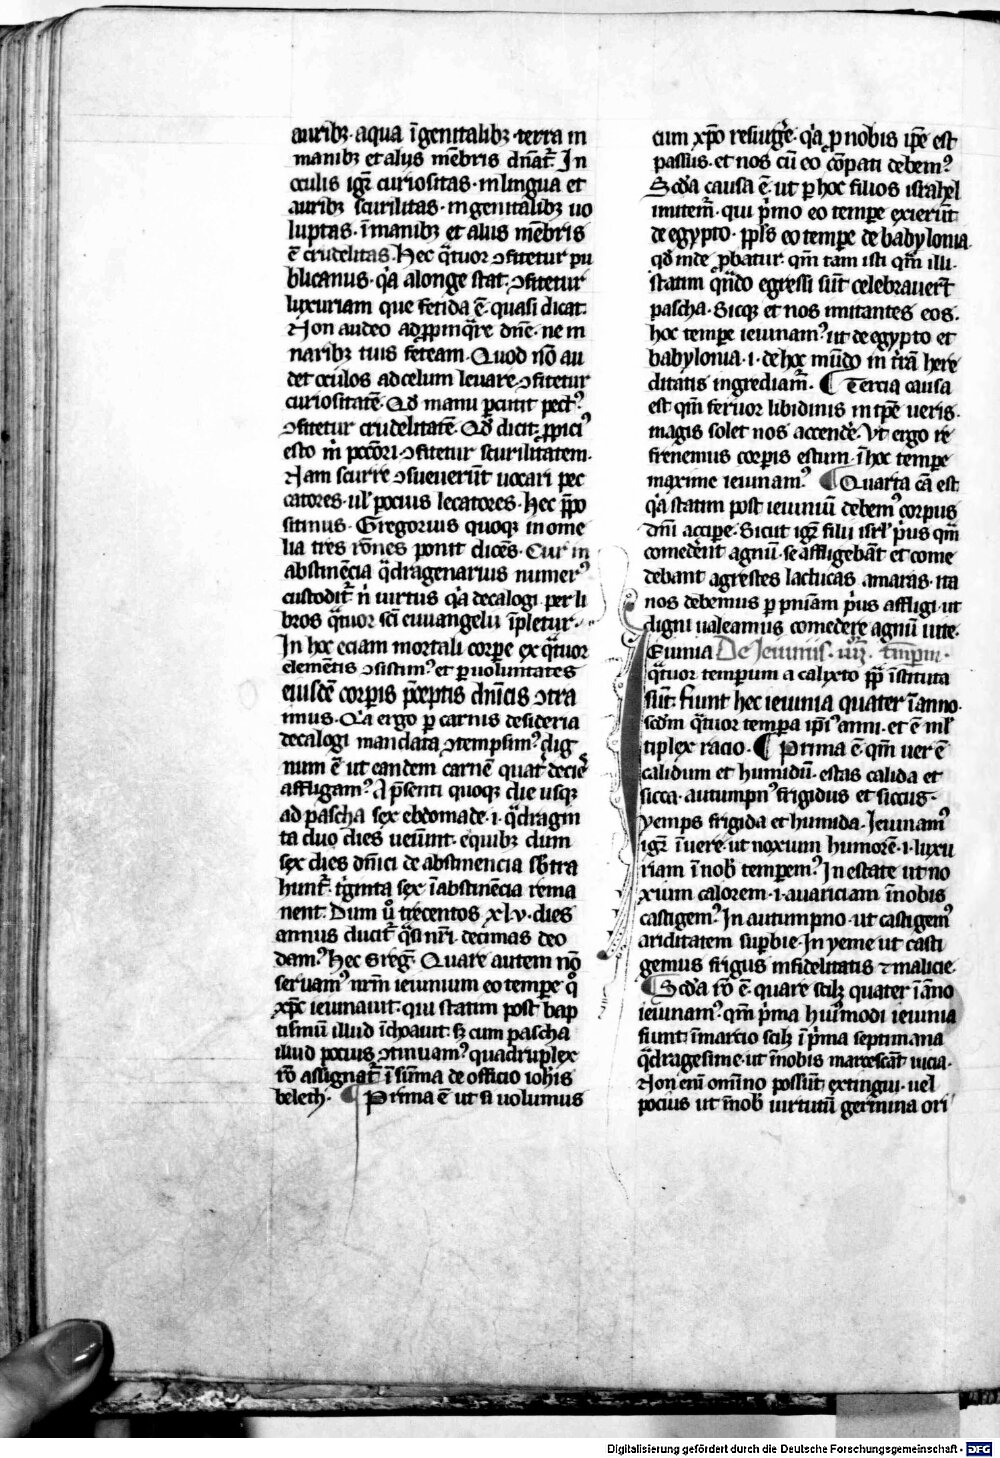 auribꝫ · aqua ī genitalibꝫ · terra in
manibꝫ et alijs mēbris dn̄at᷑ Jn
oculis igr̄ curiositas · in lingua et
auribꝫ scurilitas · in genitalibꝫ uo
luptas · ī manibꝫ et alijs mēbris
ē crudelitas · Hec qͣtuor ↄfitetur pu
blicanus · qͥa a longe stat · ↄfitetur
luxuriam que fetida ē · quasi dicat
Non audeo adꝓpinqͣre dn̄e · ne in
naribꝫ tuis feteam · Quod nō au
det oculos ad celum leuare ↄfitetur
curiositatē · Qd̄ manu ꝑcutit pectꝰ
ↄfitetur crudelitatē · Qd̄ dicit ꝓpiciꝰ
esto m̄ pcc̄ori · ↄfitetur scurilitatem ·
Nam scurre ↄsueuerūt uocari pec
catores · ul̓ pocius lecatores · Hec ꝓpo
sitinus · Gregorius quoqꝫ in ome
lia tres rōnes ponit dicēs · Cur in
abstinēcia qͣdragenarius numerꝰ
custodit᷑ n̄ uirtus qͥa decalogi per li
bros qͣtuor sc̄i euuangelij īpletur ·
Jn hoc eciam mortali corꝑe ex qͣtuor
elemētis ↄsistimꝰ et ꝑ uoluntates
eiusdē corꝑis p̄ceptis dn̄icis ↄtra
imus · Qͥa ergo ꝑ carnis desideria
decalogi mandata ↄtempsimꝰ dig
num ē ut eandem carnē quat̓ decieˢ
affligamꝰ A p̄senti quoqꝫ die usqꝫ
ad pascha sex ebdomade · i · qͣdragin
ta duo dies ueiūnt · e quibꝫ dum
sex dies dn̄ici de abstinencia sb̄tra
hunt᷑ · tͥginta sex ī abstinēcia rema
nent · Dum uͦ trecentos xl · v · dies
annus ducit᷑ qͣsi nr̄i decimas deo
damꝰ Hec Greg᷑ · Quare autem nō
seruamꝰ nr̄m ieiunium eo tempe qͦ
xp̄c ieiunauit · qui statim post bap
tismū illud īchoauit · sꝫ cum pascha
illud pocius ↄtinuamꝰ quadruplex
rō assignat᷑ ī sūma de officio ioh̄is
beleth · ¶ Prima ē ut si uolumus
cum xp̄o resurgͤe · qͥa ꝓ nobis ip̄e est
passus · et nos cū eo cōpati debemꝰ
Scd̄a causa ē · ut ꝑ hoc filios israhel
imitem᷑ · qui pͥmo eo temꝑe exierūt
de egypto · ꝓpl̓s eo temꝑe de babylonia
qd̄ inde ꝓbatur · qm̄ tam isti qm̄ illi ·
statim qn̄do egressi sūt celebrauer̄t
pascha · Sicqꝫ et nos imitantes eos ·
hoc temꝑe ieiunamꝰ ut de egypto et
babylonia · i · de hoc mūdo in tr̄ā here
ditatis ingrediam᷑ · ¶ Tercia causa
est qm̄ feruor libidinis in tꝑe ueris ·
magis solet nos accendͤe · Vt ergo re
frenemus corꝑis estum · ī hoc temꝑe
maxime ieiunamꝰ ¶ Quarta cā est
qͥa statim post ieiuniū debemꝰ corpus
dn̄i acciꝑe · Sicut igr̄ filij isrl̓ pͥus qm̄
comedͤent agnū · se affligebāt et come
debant agrestes lactucas amaras · ita
nos debemus ꝑ pn̄iam pͥus affligi · ut
digni ualeamus comedere agnū uite ·
Ieiunia De Jeiuniis · iiij · tm̄porū ·
qͣtuor temporum a calyxto pp̄ īstituta
sūt · fiunt hec ieiunia quater ī anno ·
scd̄m qͣtuor tempora ip̄iꝰ anni · et ē ml̓
tiplex racio · ¶ Prima ē · qm̄ uer ē
calidum et humidū · estas calida et
sicca · autumpnꝰ frigidus et siccus ·
yemps frigida et humida · Jeiunamꝰ
igr̄ ī uere · ut noxium humorē · i · luxu
riam ī nob̄ temperemꝰ Jn estate ut no
xium calorem · i · auariciam ī nobis
castigemꝰ Jn autumpno · ut castigemꝰ
ariditatem suꝑbie · Jn yeme ut casti
gemus frigus infidelitatis ⁊ malicie ·
¶ Scd̄a rō ē · quare scilꝫ quater ī āno
ieiunamꝰ qm̄ pͥma huiꝰmodi ieiunia
fiunt ī marcio scilꝫ ī pͥma septimana
qͣdragesime · ut ī nobis marcescāt uicia ·
Non enī omīno possūt extingui · uel
pocius ut ī nob̄ uirtutū germina ori
Digitalisierung gefördert durch die Deutsche Forschungsgemeinschaft - DFG